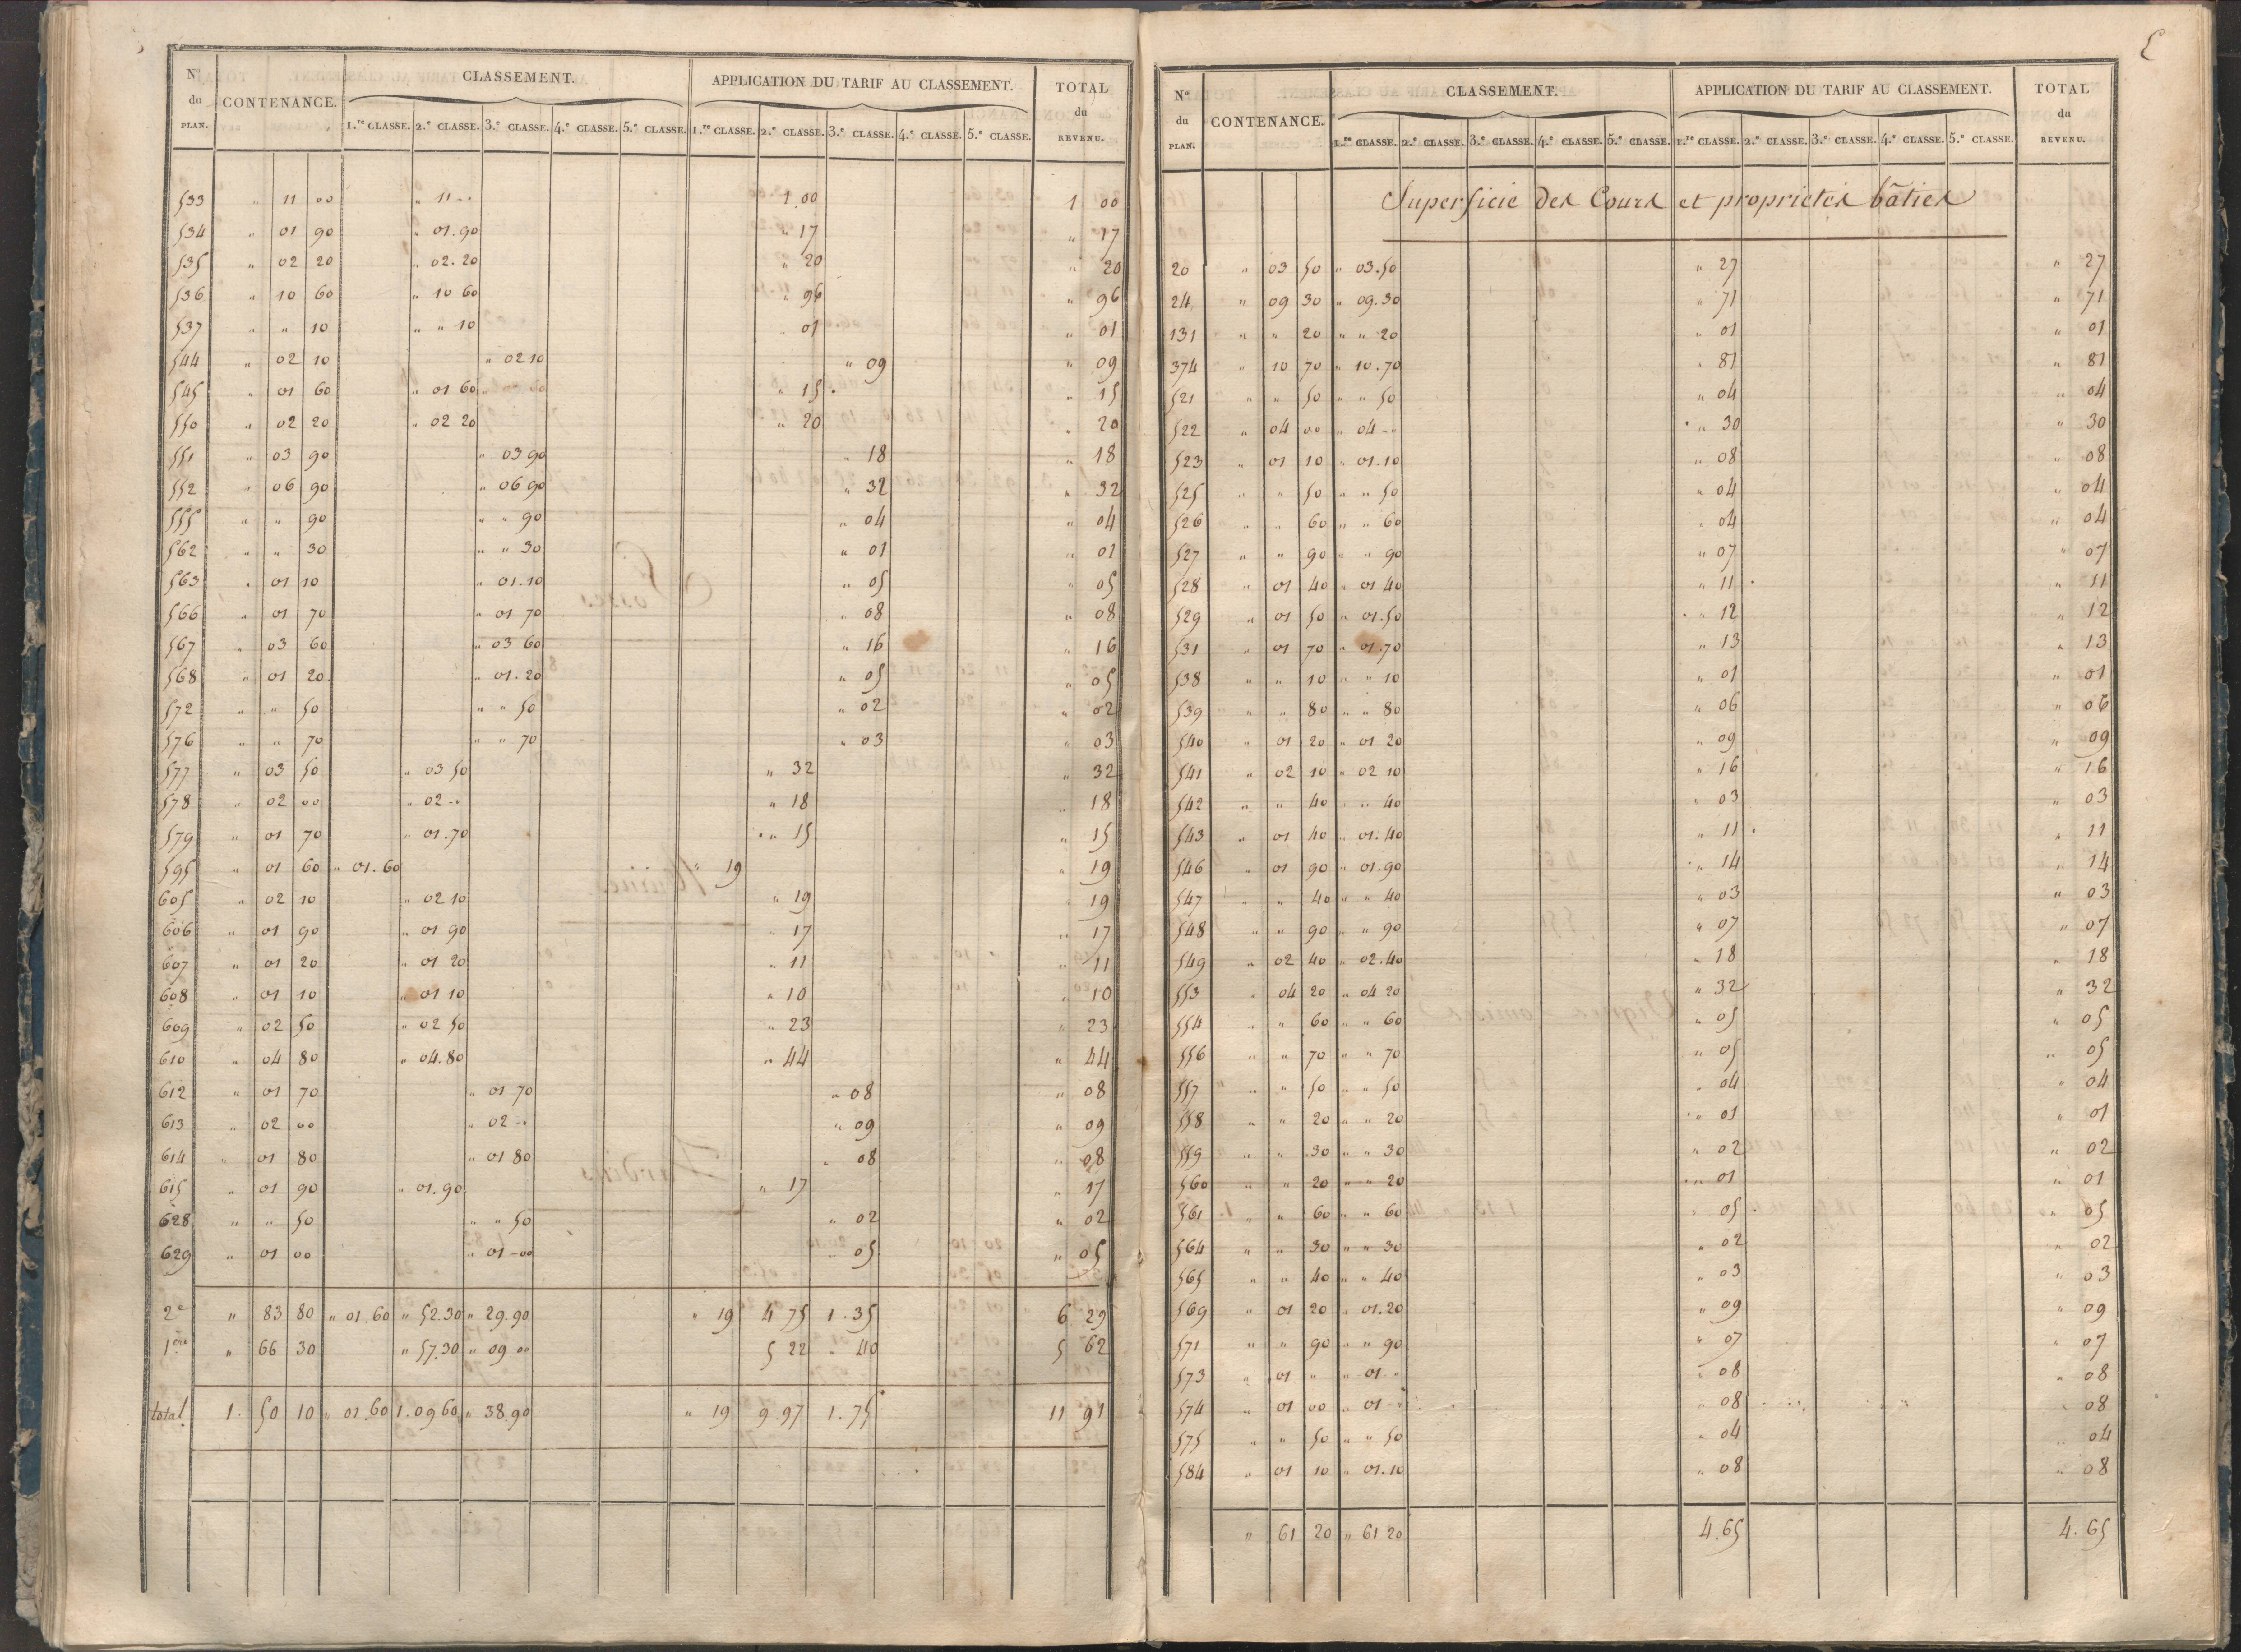 N.º du PLAN. CONTENANCE. CLASSEMENT. APPLICATION DU TARIF AU CLASSEMENT. TOTAL du REVENU.
1.re CLASSE. 2.e CLASSE. 3.e CLASSE. 4.e CLASSE. 5.e CLASSE. 1.re CLASSE. 2.e CLASSE. 3.e CLASSE. 4.e CLASSE. 5.e CLASSE.
533 " 11 00 " 11 -- 1.00 1 00
534 " 01 90 " 01.90 " 17 " 17
535 " 02 20 " 02.20 " 20 " 20
536 " 10 60 " 10 60 " 96 " 96
537 " " 10 " " 10 01 " 01
544 " 02 10 " 02 10 " 09 " 09
545 " 01 60 " 01 60 " 15 " 15
550 " 02 20 " 02 20 " 20 " 20
551 " 03 90 " 03 90 " 18 " 18
552 " 06 90 " 06 90 " 32 " 32
555 " " 90 " " 90 " 04 " 04
562 " " 30 " " 30 " 01 " 01
563 " 01 10 " 01.10 " 05 " 05
566 " 01 70 " 01 70 " 08 " 08
567 " 03 60 " 03 60 " 16 " 16
568 " 01 20 " 01.20 " 05 " 05
572 " " 50 " " 50 " 02 " 02
576 " " 70 " " 70 " 03 " 03
577 " 03 50 " 03 50 " 32 " 32
578 " 02 00 " 02 -- " 18 " 18
579 " 01 70 " 01.70 " 15 " 15
595 " 01 60 " 01.60 " 19 " 19
605 " 02 10 " 02 10 " 19 19
606 " 01 90 " 01 90 " 17 " 17
607 " 01 20 " 01 20 " 11 " 11
608 " 01 10 " 01 10 " 10 " 10
609 " 02 50 " 02 50 " 23 " 23
610 " 04 80 " 04.80 " 44 " 44
612 " 01 70 " 01 70 " 08 " 08
613 " 02 00 " 02 -- " 09 " 09
614 " 01 80 " 01 80 " 08 " 08
615 " 01 90 " 01.90 " 17 " 17
628 " " 50 " " 50 " 02 " 02
629 " 01 00 " 01-00 " 05 " 05
2e " 83 80 " 01.60 " 52.30 " 29.90 " 19 4 75 1.35 6 29
1ère " 66 30 " 57.30 " 09 00 5 22 " 40 5 62
total 1. 50 10 " 01.60 1.09 60 " 38.90 " 19 9.97 1.75 11 91
N.º du PLAN. CONTENANCE. CLASSEMENT. APPLICATION DU TARIF AU CLASSEMENT. TOTAL du REVENU.
1.re CLASSE. 2.e CLASSE. 3.e CLASSE. 4.e CLASSE. 5.e CLASSE. 1.re CLASSE. 2.e CLASSE. 3.e CLASSE. 4.e CLASSE. 5.e CLASSE.
Superficie des Cours et propriétés bâties
20 " 03 50 " 03.50 " 27 " 27
24 " 09 30 " 09.30 " 71 " 71
131 " " 20 " " 20 " 01 " 01
374 " 10 70 " 10.70 " 81 " 81
521 " " 50 " " 50 " 04 " 04
522 " 04 00 " 04 -- " 30 " 30
523 " 01 10 " 01.10 " 08 " 08
525 " " 50 " " 50 " 04 " 04
526 " " 60 " " 60 " 04 " 04
527 " " 90 " " 90 " 07 " 07
528 " 01 40 " 01 40 " 11 " 11
529 " 01 50 " 01.50 " 12 " 12
531 " 01 70 " 01.70 " 13 " 13
538 " " 10 " " 10 " 01 " 01
539 " " 80 " " 80 " 06 " 06
540 " 01 20 " 01 20 " 09 " 09
541 " 02 10 " 02 10 " 16 " 16
542 " " 40 " " 40 " 03 " 03
543 " 01 40 " 01.40 " 11 " 11
546 " 01 90 " 01.90 " 14 " 14
547 " " 40 " " 40 " 03 " 03
548 " " 90 " " 90 " 07 " 07
549 " 02 40 " 02.40 " 18 " 18
553 " 04 20 " 04 20 " 32 " 32
554 " " 60 " " 60 " 05 " 05
556 " " 70 " " 70 " 05 " 05
557 " " 50 " " 50 " 04 " 04
558 " " 20 " " 20 " 01 " 01
559 " " 30 " " 30 " 02 " 02
560 " " 20 " " 20 " 01 " 01
561 " " 60 " " 60 " 05 " 05
564 " " 30 " " 30 " 02 " 02
565 " " 40 " " 40 " 03 " 03
569 " 01 20 " 01.20 " 09 " 09
571 " " 90 " " 90 " 07 " 07
573 " 01 " " 01 " " 08 " 08
574 " 01 00 " 01 -- " 08 " 08
575 " " 50 " " 50 " 04 " 04
584 " 01 10 " 01.10 " 08 " 08
" 61 20 " 61 20 4.65 4.65